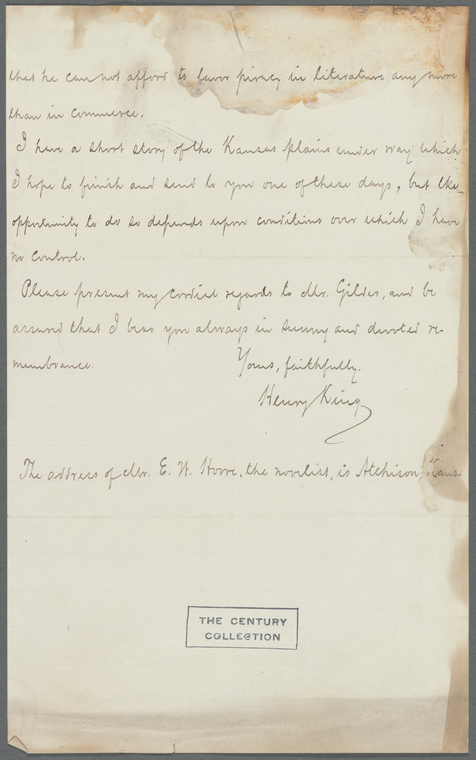 that he can not afford to favor piracy in literature any more
than in commerce.
I have a short story of the Kansas plains under way which
I hope to finish and send to you one of these days, but the
opportunity to do so depends upon conditions over which I have
no control.
Please present my cordial regards to Mr. Gilder, and be
assured that I bear you always in sunny and devoted re-
membrance.
Yours, faithfully.
Henry King
The address of Mr. E. W. Howe, the novelist, is Atchison, Kans
THE CENTURY
COLLECTION